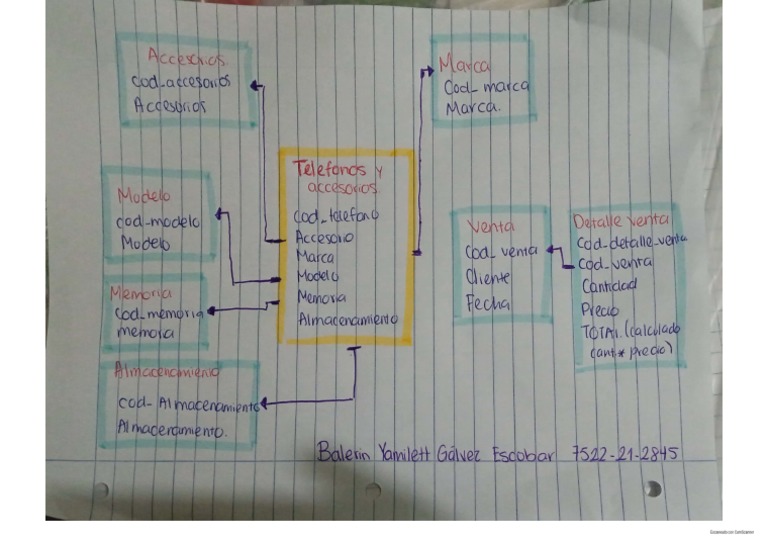 Accesorios
Cod_accesorios
Accesorios
Marca
Cod_marca
Marca.
Telefonos y
accesorios.
Cod_telefono
Accesorio
Marca
Modelo
Memoria
Almacenamiento
Modelo
cod_modelo
Modelo
Memoria
cod_memoria
memoria
Almacenamiento
cod_Almacenamiento
Almacenamiento.
Venta
Cod_venta
Cliente
Fecha
Detalle venta
Cod_detalle_venta
Cod_venta
Cantidad
Precio
TOTAL (calculado
cant * precio)
Balerin Yamilett Gálvez Escobar 7522-21-2845
Escaneado con CamScanner